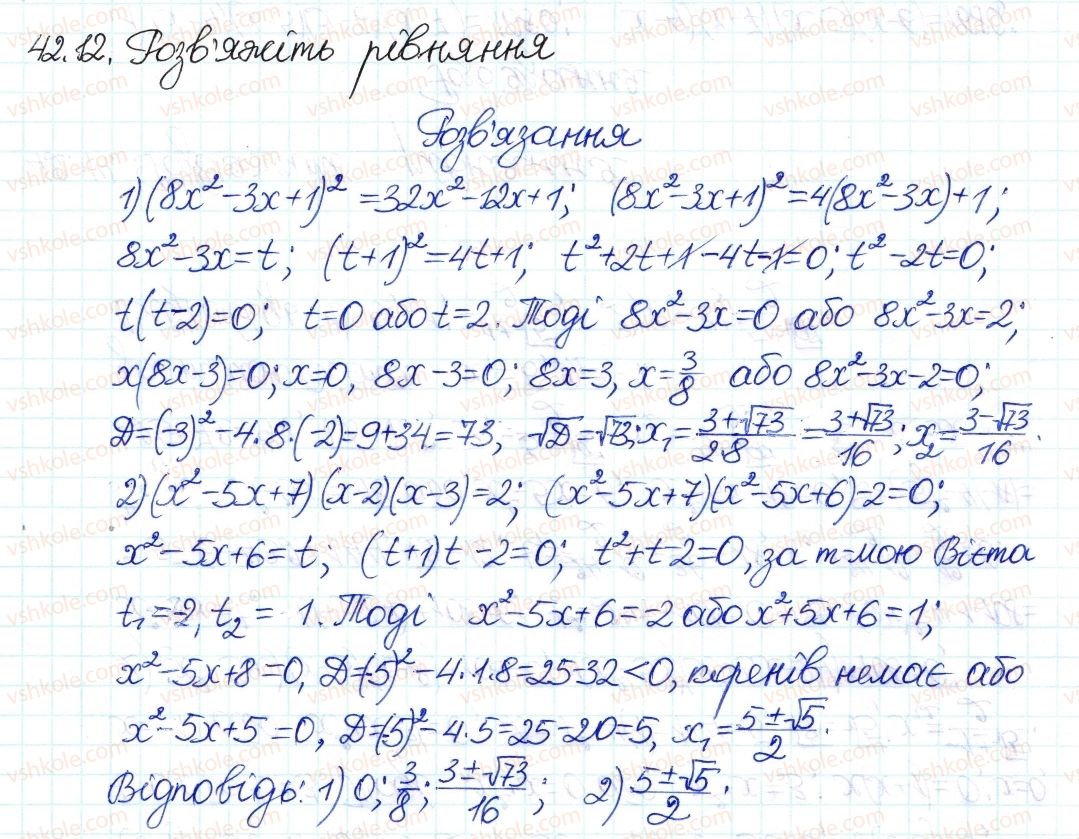 42.12. Розв'яжіть рівняння
Розв'язання
1) (8x²-3x+1)² =32x²-12x+1; (8x²-3x+1)²=4(8x²-3x)+1;
8x²-3x=t; (t+1)²=4t+1; t²+2t+1-4t-1=0; t²-2t=0;
t(t-2)=0; t=0 або t=2. Тоді 8x²-3x=0 або 8x²-3x=2;
x(8x-3)=0; x=0, 8x-3=0; 8x=3, x=3/8 або 8x²-3x-2=0;
D=(-3)²-4·8·(-2)=9+34=73, √D=√73; x₁=(3+√73)/(2·8)=(3+√73)/16; x₂=(3-√73)/16.
2) (x²-5x+7)(x-2)(x-3)=2; (x²-5x+7)(x²-5x+6)-2=0;
x²-5x+6=t; (t+1)t-2=0; t²+t-2=0, за т-мою Вієта
t₁=-2, t₂=1. Тоді x²-5x+6=-2 або x²+5x+6=1;
x²-5x+8=0, D=(-5)²-4·1·8=25-32<0, коренів немає або
x²-5x+5=0, D=(-5)²-4·5=25-20=5, x₁=(5±√5)/2.
Відповідь: 1) 0; 3/8; (3±√73)/16; 2) (5±√5)/2.
vshkole.com